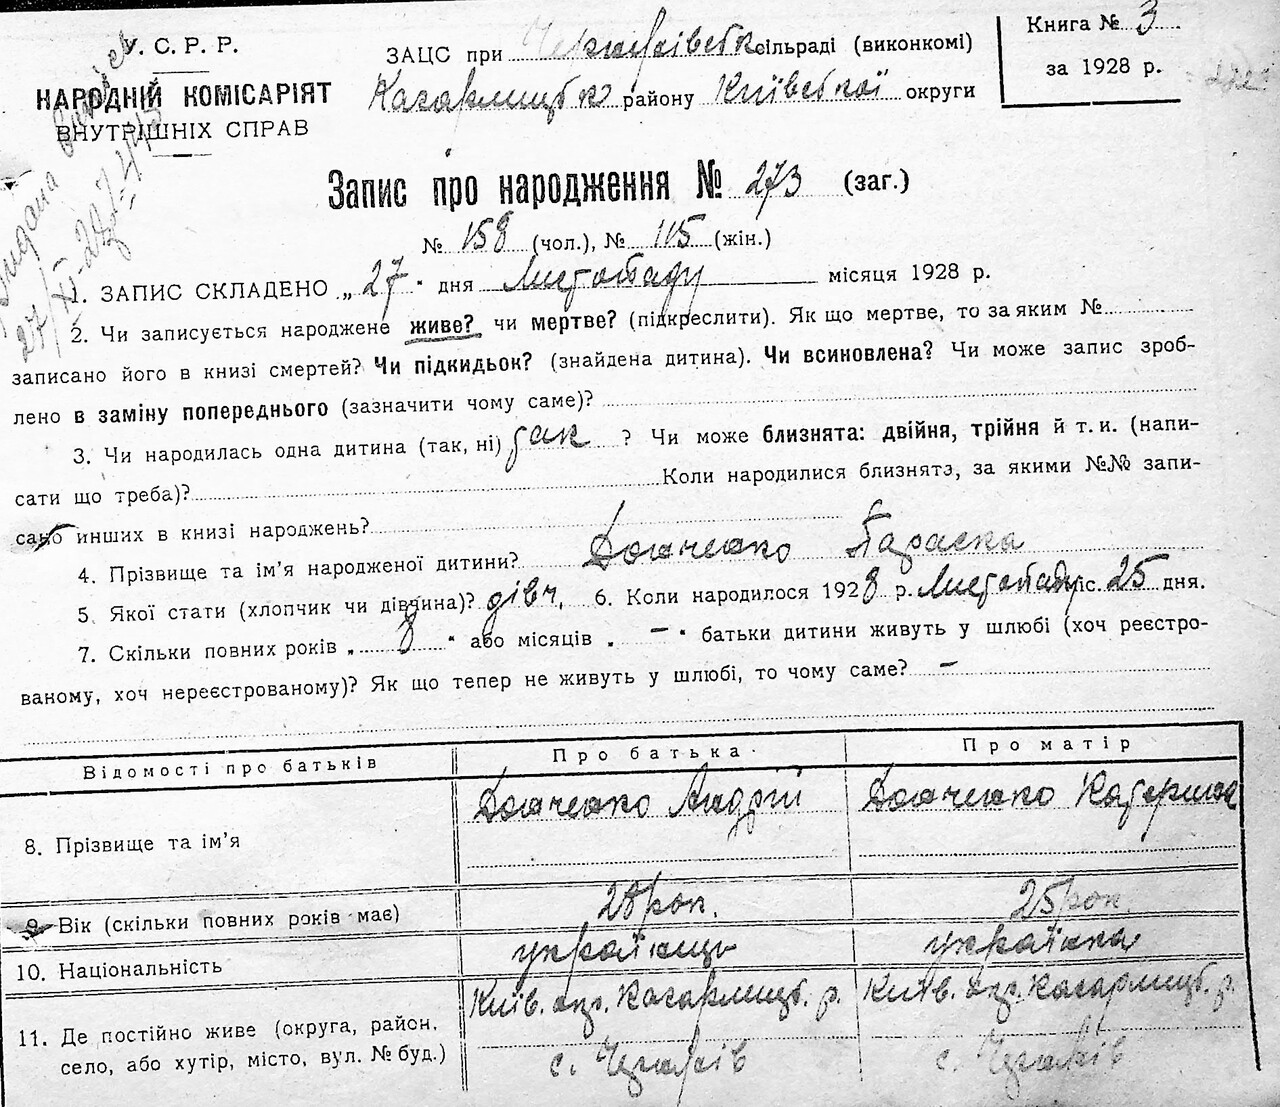 У. С. Р. Р.
НАРОДНІЙ КОМІСАРІЯТ
ВНУТРІШНІХ СПРАВ
ЗАЦС при сільраді (виконкомі)
Кагарлицьк району Київської округи
Книга № 3
за 1928 р.
Видана
27/XI-28 р.
Запис про народження № 273 (заг.)
№ 158 (чол.), № 115 (жін.)
1. ЗАПИС СКЛАДЕНО „ 27 " дня Листопаду місяця 1928 р.
2. Чи записується народжене живе? чи мертве? (підкреслити). Як що мертве, то за яким №
записано його в книзі смертей? Чи підкидьок? (знайдена дитина). Чи всиновлена? Чи може запис зроб-
лено в заміну попереднього (зазначити чому саме)?
3. Чи народилась одна дитина (так, ні) так ? Чи може близнята: двійня, трійня й т. и. (напи-
сати що треба)? Коли народилися близнята, за якими №№ запи-
сано инших в книзі народжень?
4. Прізвище та ім'я народженої дитини? Донченко Параска
5. Якої стати (хлопчик чи дівчина)? дівч. 6. Коли народилось 1928 р. Листопаду міс. 25 дня.
7. Скільки повних років „ 8 " або місяців „ — " батьки дитини живуть у шлюбі (хоч реєстро-
ваному, хоч нереєстрованому)? Як що тепер не живуть у шлюбі, то чому саме? —
Відомості про батьків Про батька Про матір
8. Прізвище та ім'я Донченко Андрій Донченко Катерина
9. Вік (скільки повних років має) 28 рок. 25 рок.
10. Національність українець українка
11. Де постійно живе (округа, район, Київ. окр. Кагарлицьк. р. Київ. окр. Кагарлицьк. р.
село, або хутір, місто, вул. № буд.) с. с.